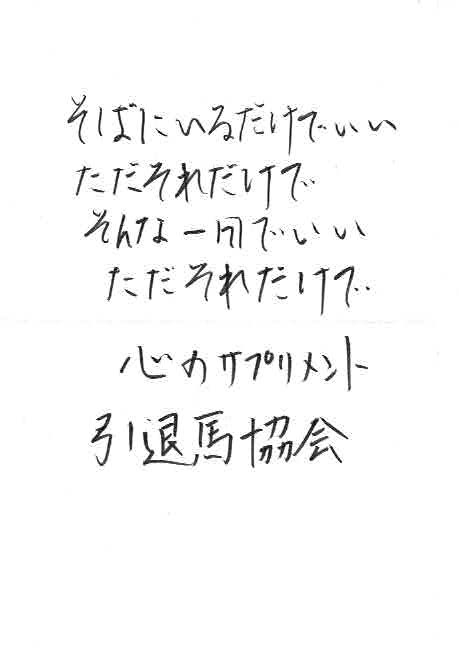 そばにいるだけでいい
ただそれだけで
そんな一日でいい
ただそれだけで
心のサプリメント
引退馬協会